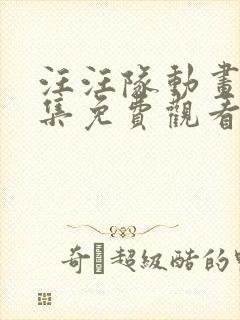 汪汪隊動畫
集免費觀看
奇 超級酷的